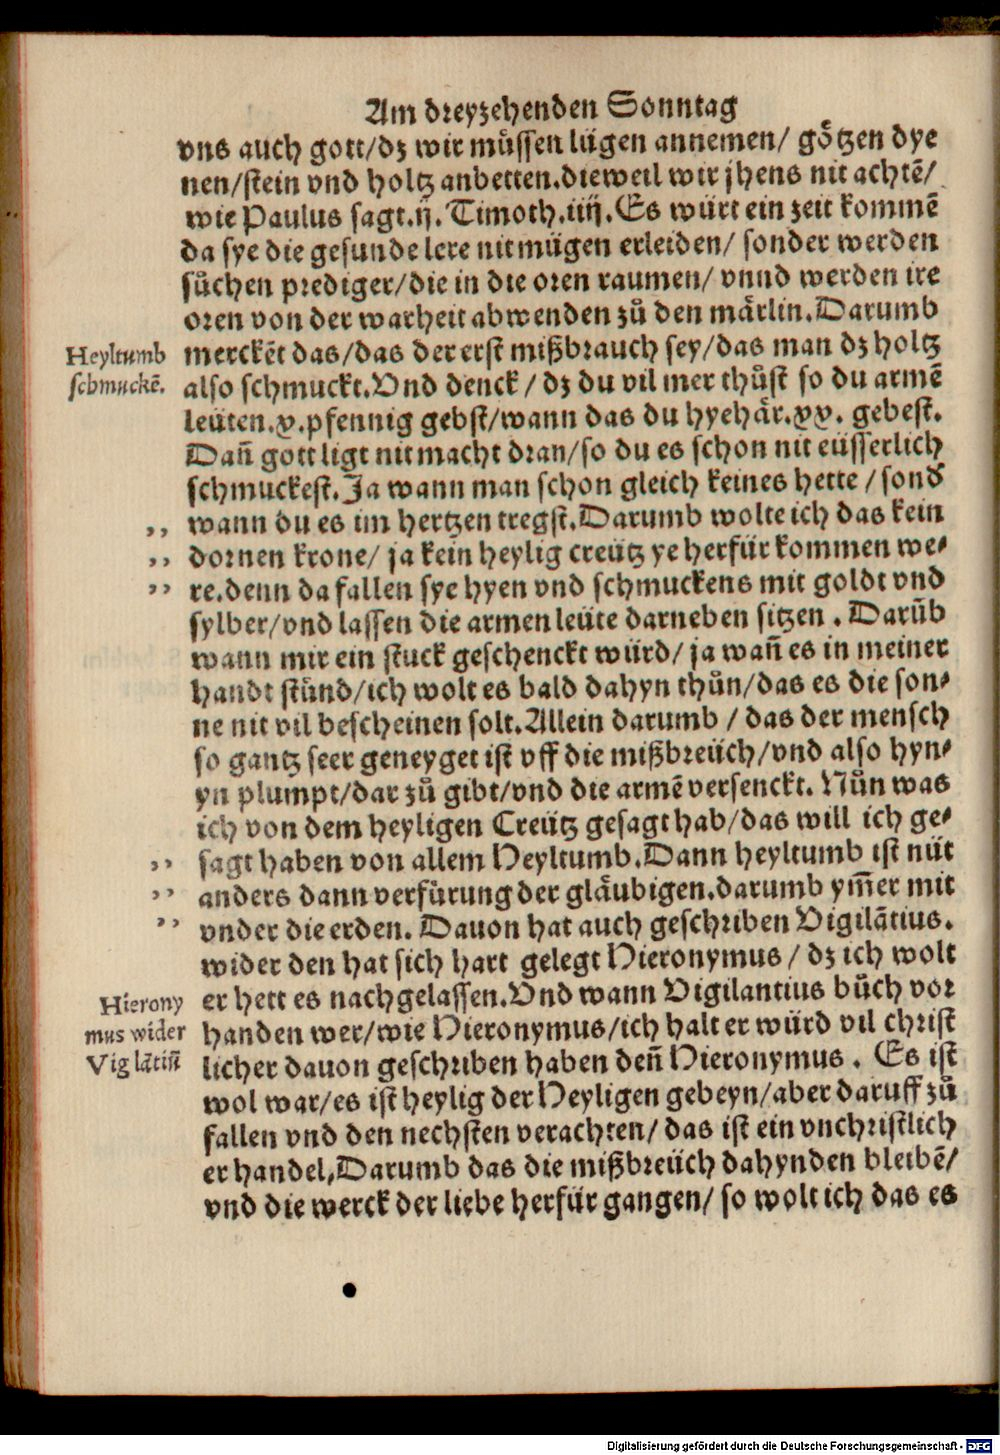 Am dreyzehenden Sonntag
vns auch gott/dz wir müssen lügen annemen/ gȫtzen dye
nen/stein vnd holtz anbetten.dieweil wir jhens nit achtē/
wie Paulus sagt.ij. Timoth.iiij.Es würt ein zeit kommē
da sye die gesunde lere nit mügen erleiden/ sonder werden
sůchen prediger/die in die oren raumen/ vnnd werden ire
oren von der warheit abwenden zů den märlin.Darumb
Heyltumb
schmuckē.
merckēt das/das der erst mißbrauch sey/das man dz holtz
also schmuckt.Vnd denck / dz du vil mer thůst so du armē
leüten.x.pfennig gebst/wann das du hyehär.xx. gebest.
Dañ gott ligt nit macht dran/so du es schon nit eüsserlich
schmuckest.Ja wann man schon gleich keines hette / sond
,, wann du es im hertzen tregst.Darumb wolte ich das kein
,, dornen krone/ ja kein heylig creütz ye herfür kommen we-
,, re.denn da fallen sye hyen vnd schmuckens mit goldt vnd
sylber/vnd lassen die armen leüte darneben sitzen . Darūb
wann mir ein stuck geschenckt würd/ ja wañ es in meiner
handt stünd/ich wolt es bald dahyn thůn/das es die son-
ne nit vil bescheinen solt.Allein darumb / das der mensch
so gantz seer geneyget ist vff die mißbreüch/vnd also hyn-
yn plumpt/dar zů gibt/vnd die armē versenckt. Nůn was
ich von dem heyligen Creütz gesagt hab/das will ich ge-
,, sagt haben von allem Heyltumb.Dann heyltumb ist nüt
,, anders dann verfürung der gläubigen.darumb ym̄er mit
,, vnder die erden. Dauon hat auch geschriben Vigilātius.
wider den hat sich hart gelegt Hieronymus / dz ich wolt
Hierony
mus wider
Vig lātiū
er hett es nachgelassen.Vnd wann Vigilantius bůch vor
handen wer/wie Hieronymus/ich halt er würd vil christ
licher dauon geschriben haben deñ Hieronymus . Es ist
wol war/es ist heylig der Heyligen gebeyn/aber daruff zů
fallen vnd den nechsten verachten/ das ist ein vnchristlich
er handel,Darumb das die mißbreüch dahynden bleibē/
vnd die werck der liebe herfür gangen/ so wolt ich das es
Digitalisierung gefördert durch die Deutsche Forschungsgemeinschaft - DFG